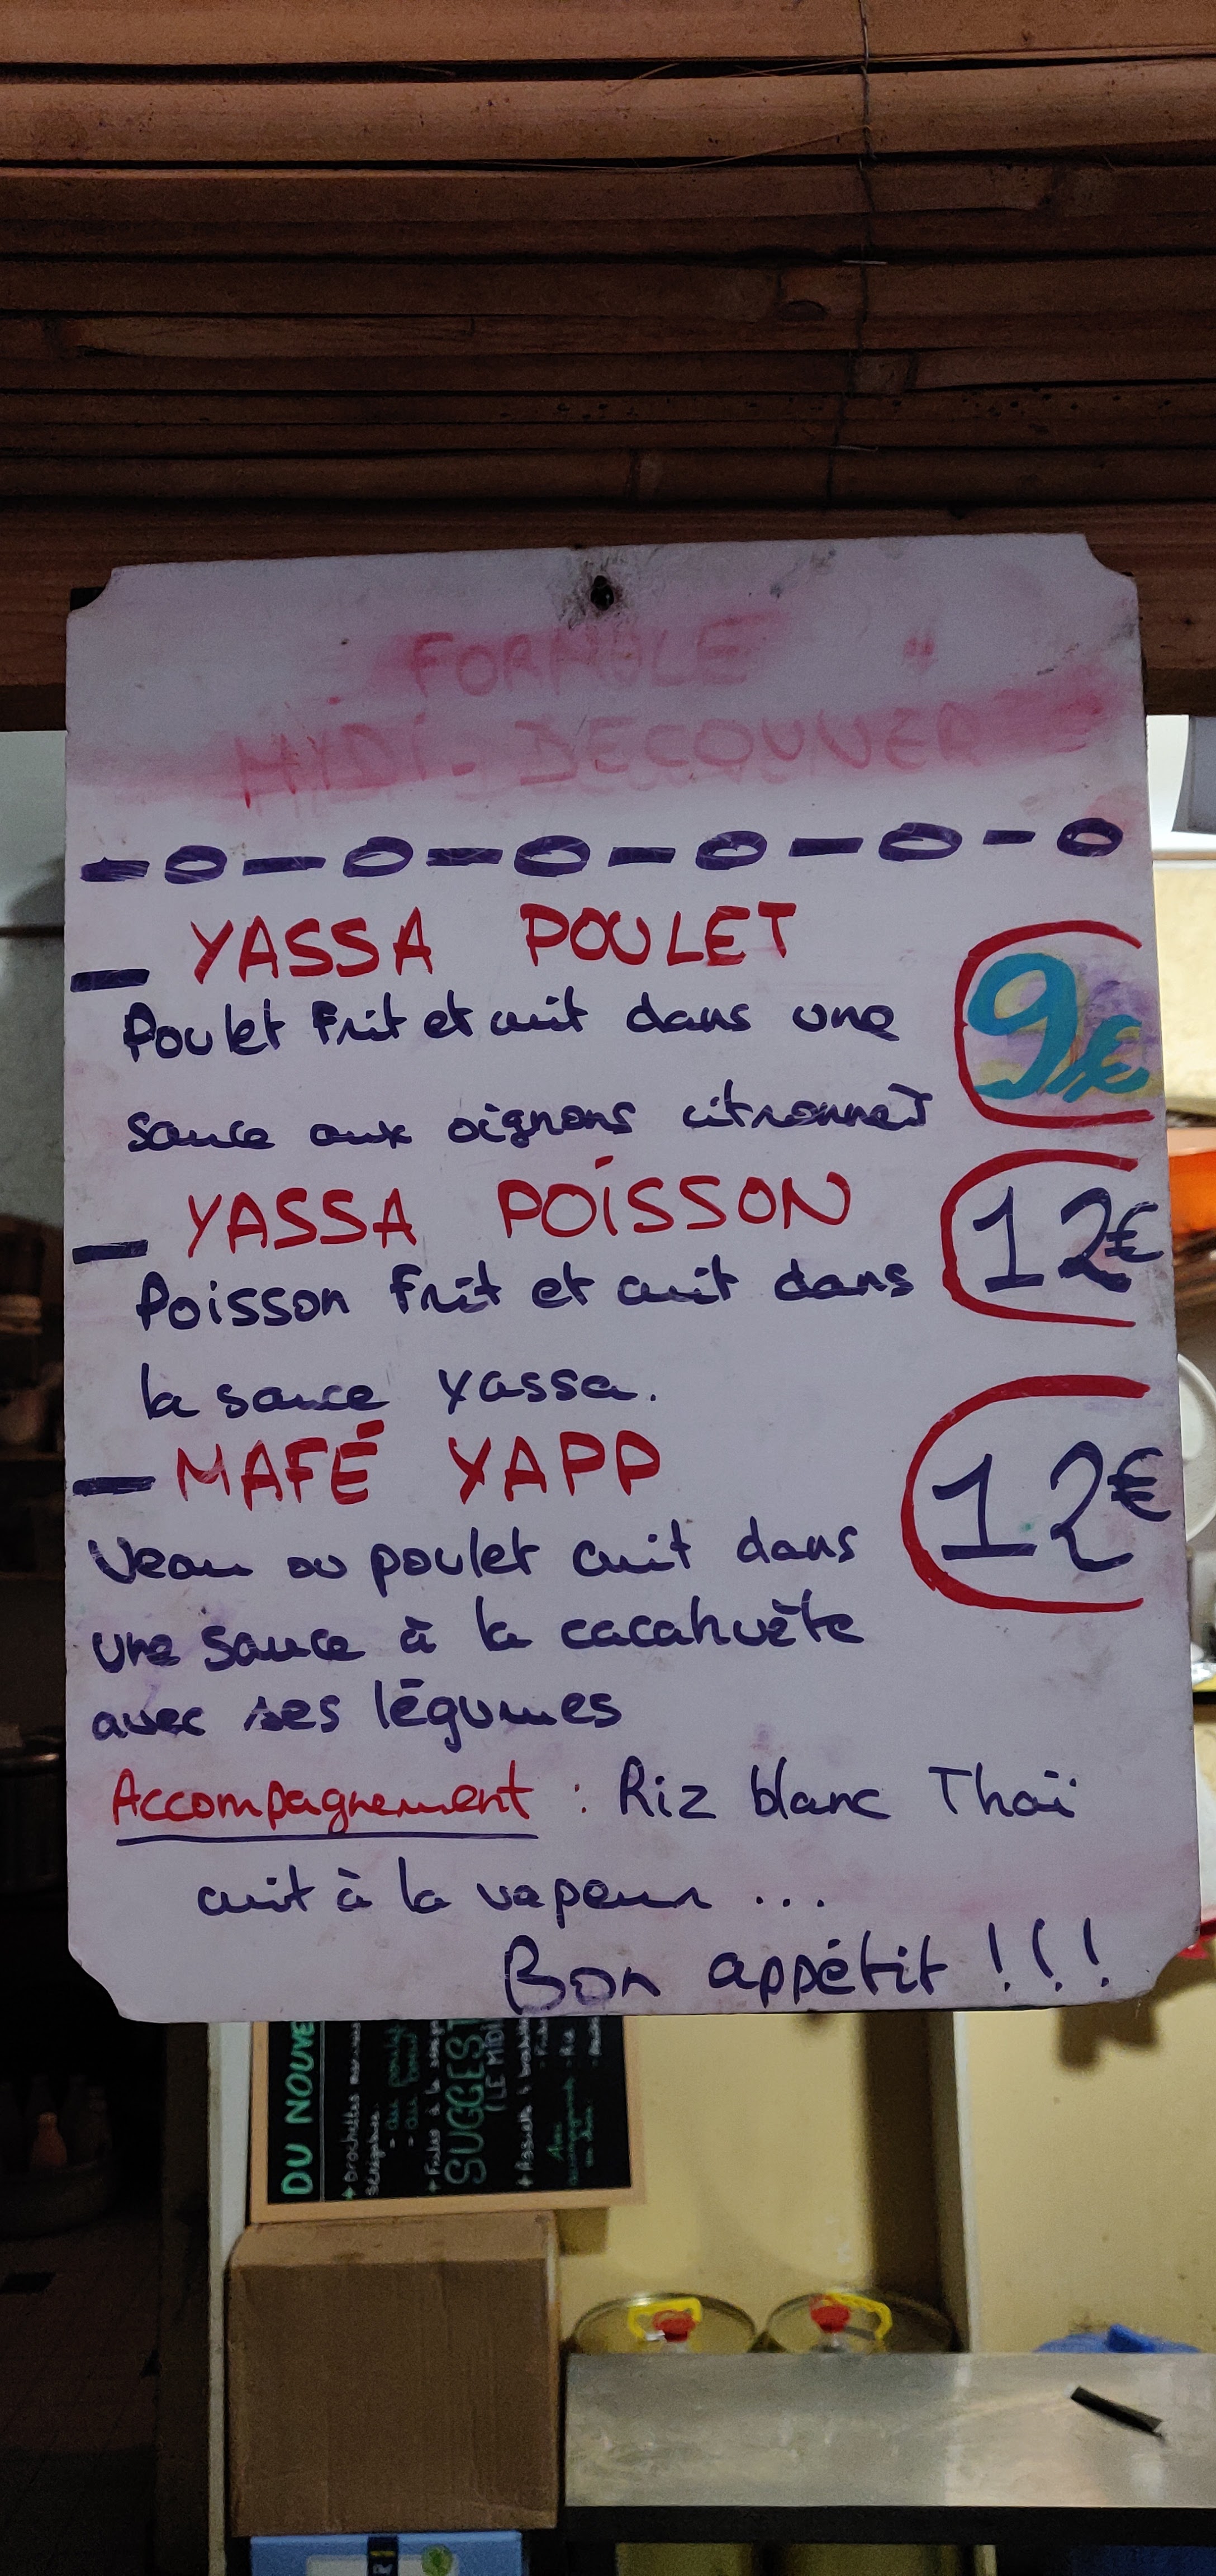 FORMULE
MIDI-DECOUVER
YASSA POULET
Poulet Frit et cuit dans une
9€
sauce aux oignons citronnés
YASSA POISSON
12€
Poisson Frit et cuit dans
la sauce Yassa.
MAFÉ YAPP
12€
Veau ou poulet cuit dans
une sauce à la cacahuète
avec ses légumes
Accompagnement : Riz blanc Thaï
cuit à la vapeur ...
Bon appétit !!!
DU NOUVE
+ Brochettes
SUGGEST
(LE MIDI